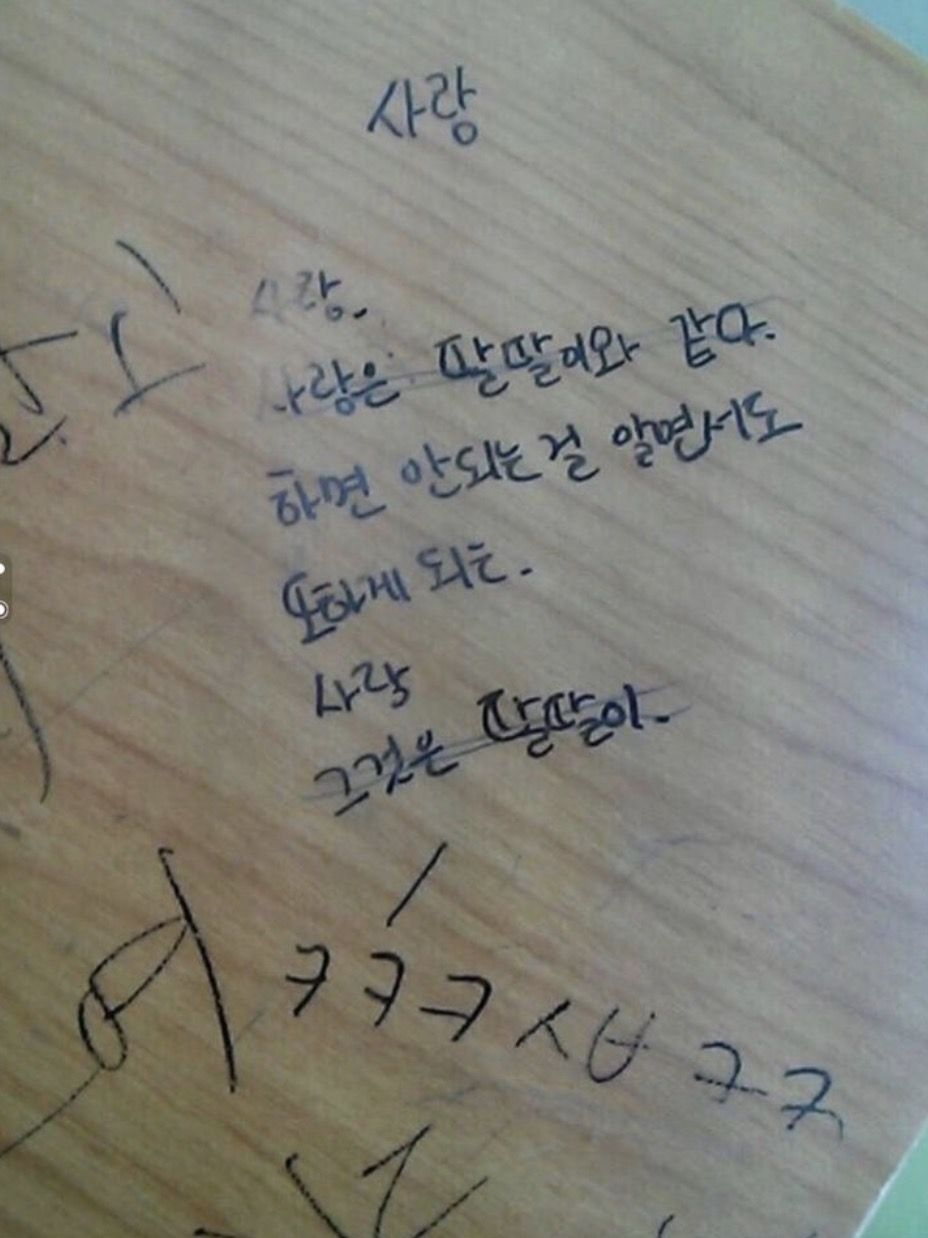 사랑
사랑.
사랑은 딸딸이와 같다.
하면 안되는 걸 알면서도
또하게 되는.
사랑
그것은 딸딸이.
ㅋㅋㅋㅅㅂㅋㅋ